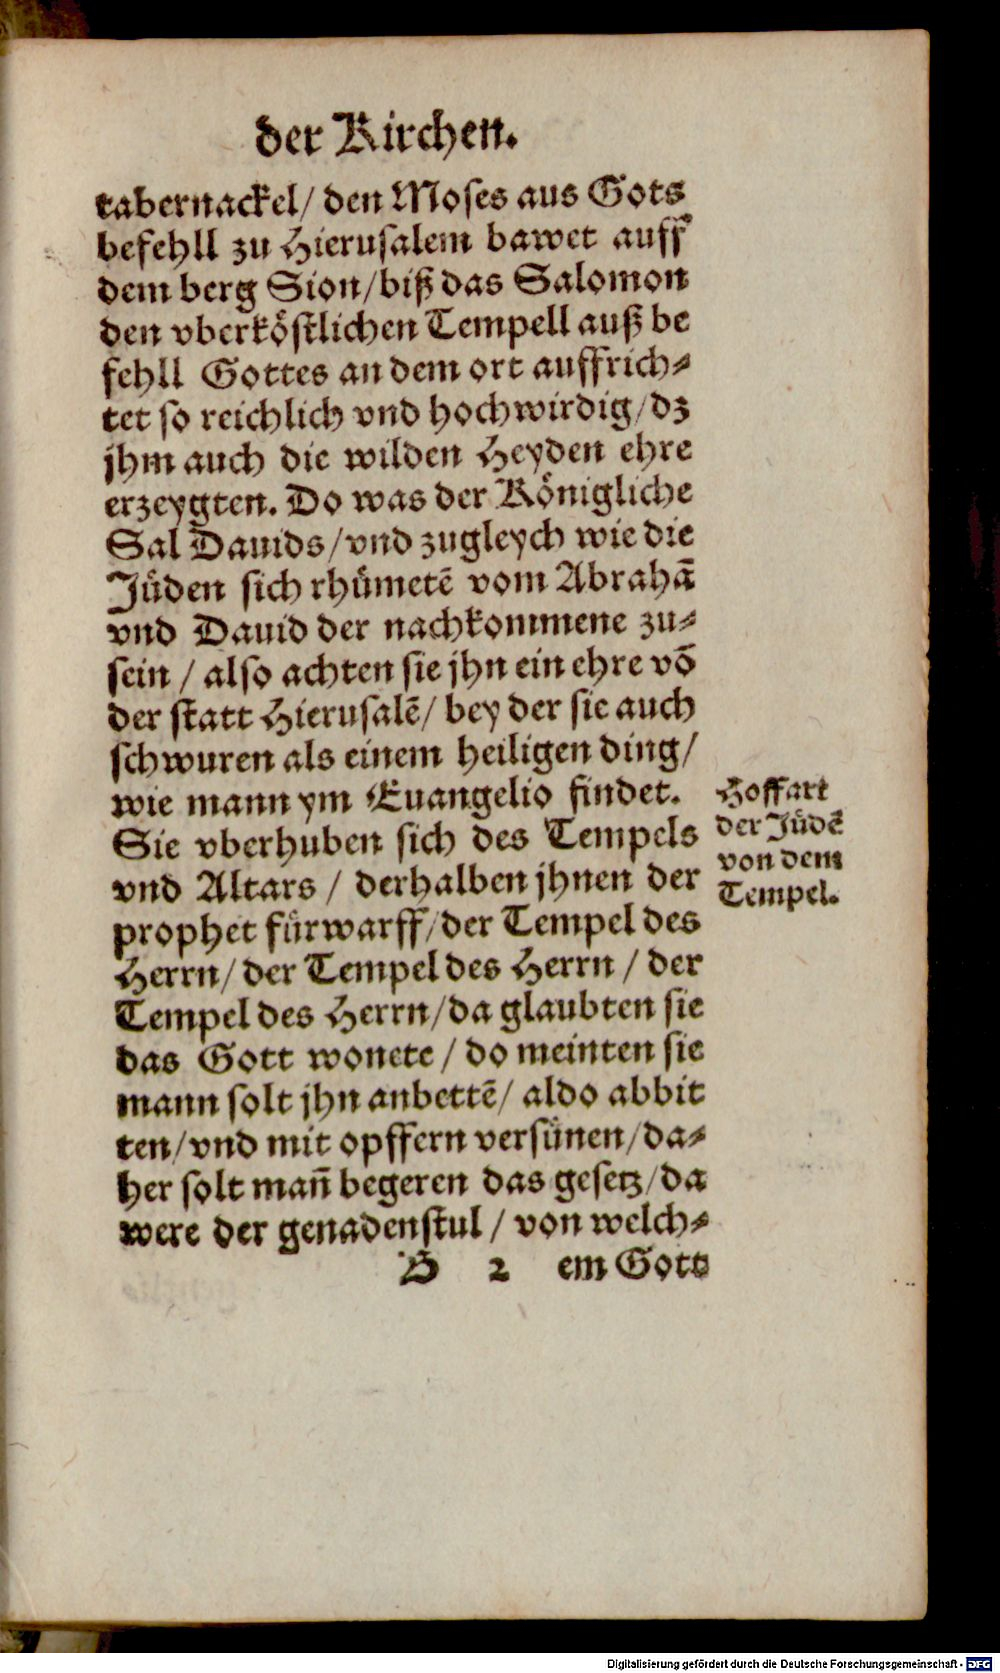 der Kirchen.
tabernackel/ den Moses aus Gots
befehll zu Hierusalem bawet auff
dem berg Sion/biß das Salomon
den vberköstlichen Tempell auß be
fehll Gottes an dem ort auffrich⸗
tet so reichlich vnd hochwirdig/dz
jhm auch die wilden Heyden ehre
erzeygten. Do was der Königliche
Sal Dauids/vnd zugleych wie die
Jüden sich rhümetē vom Abrahā
vnd Dauid der nachkommene zu⸗
sein / also achten sie jhn ein ehre vō
der statt Hierusalē/ bey der sie auch
schwuren als einem heiligen ding/
wie mann ym Euangelio findet.
Sie vberhuben sich des Tempels
vnd Altars / derhalben jhnen der
prophet fürwarff/der Tempel des
Herrn/ der Tempel des Herrn / der
Tempel des Herrn/da glaubten sie
das Gott wonete / do meinten sie
mann solt jhn anbettē/ aldo abbit
ten/vnd mit opffern versünen/da⸗
her solt man̄ begeren das gesetz/da
were der genadenstul / von welch⸗
B 2 em Gott
Hoffart
der Jüdē
von dem
Tempel.
Digitalisierung gefördert durch die Deutsche Forschungsgemeinschaft - DFG